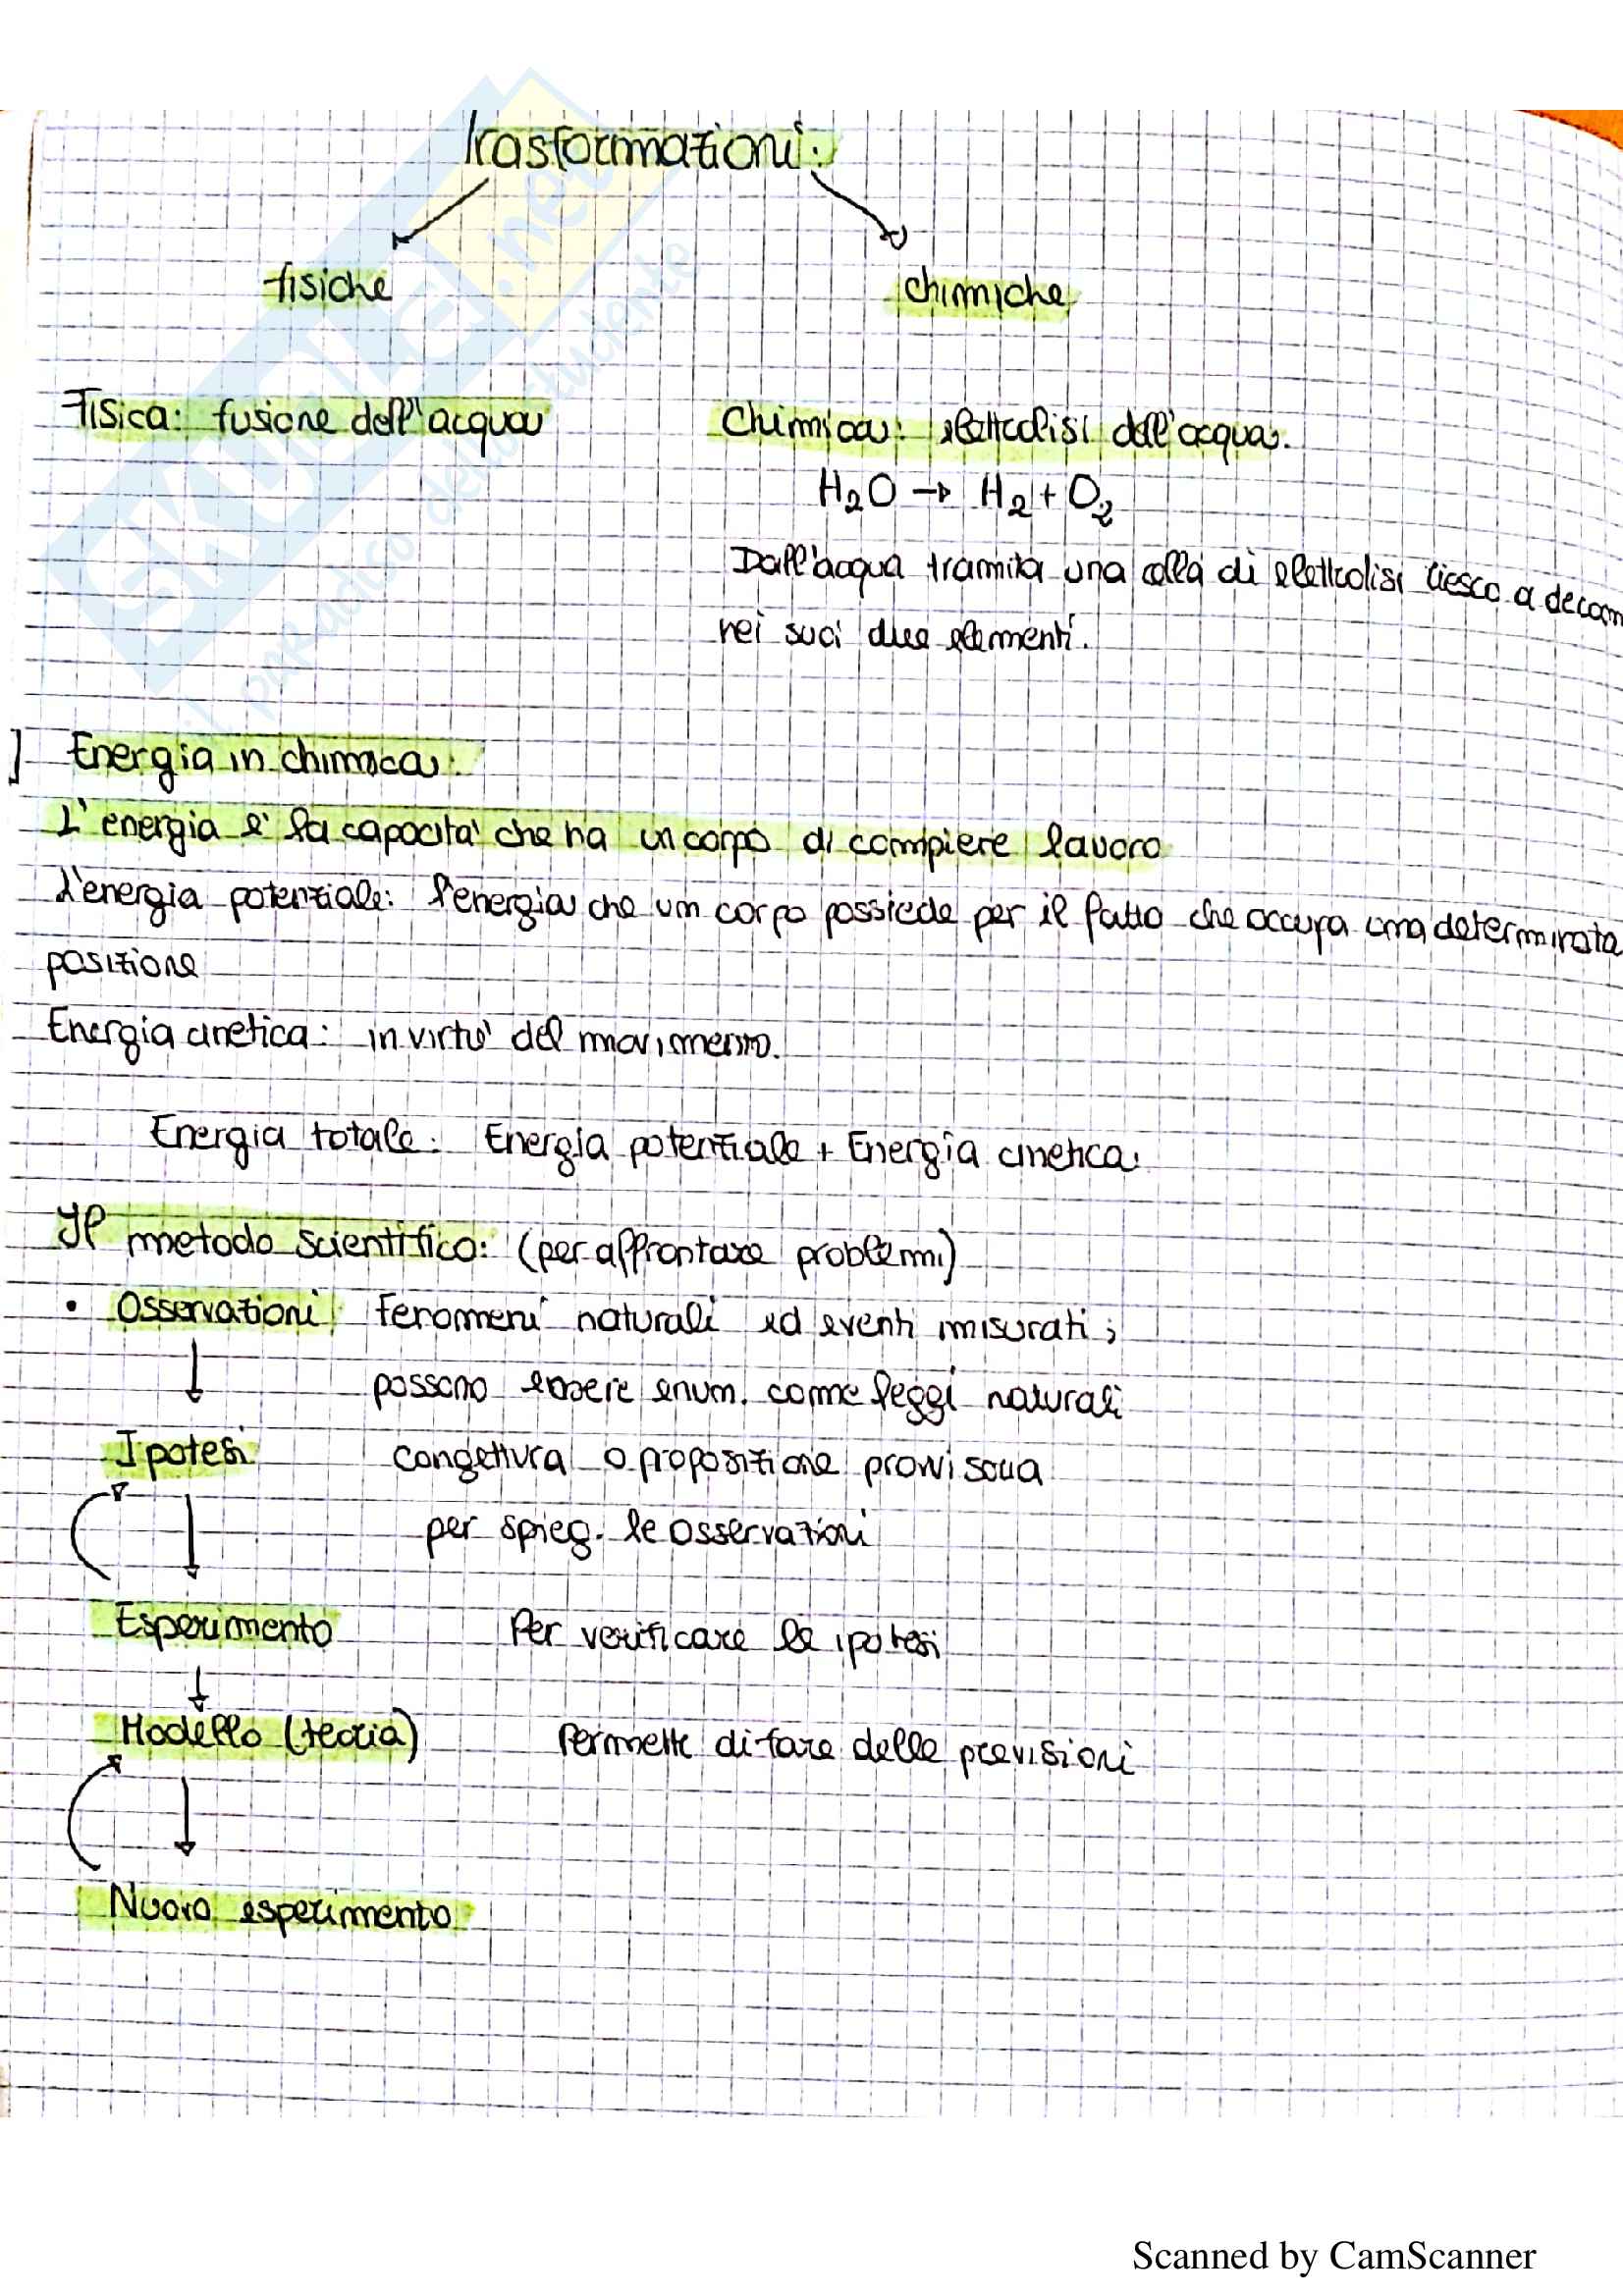 Trasformazioni:
fisiche
chimiche
Fisica: fusione dell'acqua
Chimica: elettrolisi dell'acqua.
H₂O → H₂ + O₂
Dall'acqua tramite una cella di elettrolisi riesco a decom
nei suoi due elementi.
] Energia in chimica:
L'energia è la capacità che ha un corpo di compiere lavoro
L'energia potenziale: l'energia che un corpo possiede per il fatto che occupa una determinata
posizione
Energia cinetica: in virtù del movimento.
Energia totale: Energia potenziale + Energia cinetica
Il metodo scientifico: (per affrontare problemi)
• Osservazioni fenomeni naturali ed eventi misurati;
possono essere enum. come leggi naturali
Ipotesi congettura o proposizione provvisoria
per spieg. le osservazioni
Esperimento Per verificare le ipotesi
Modello (teoria) Permette di fare delle previsioni
Nuovo esperimento
SKUOLA.net
il paradiso dello studente
Scanned by CamScanner